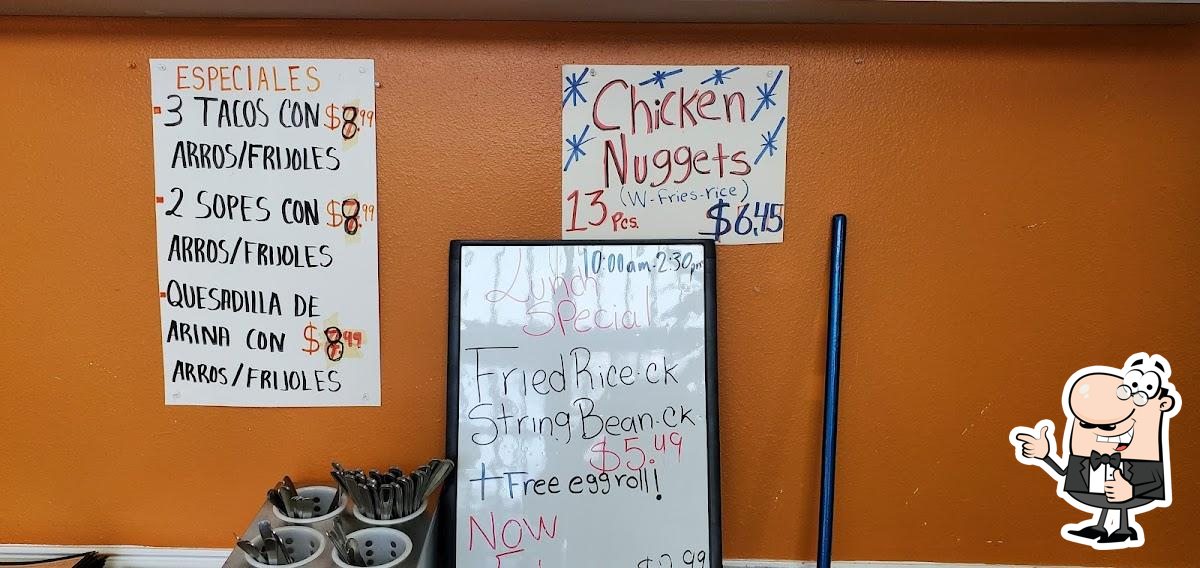 ESPECIALES
3 TACOS CON $8.99
ARROS/FRIJOLES
2 SOPES CON $8.99
ARROS/FRIJOLES
QUESADILLA DE
ARINA CON $8.99
ARROS/FRIJOLES
Chicken
Nuggets
(W-Fries-rice)
13 Pcs. $6.45
10:00am-2:30pm
Lunch
Special
Fried Rice-ck
String Bean-ck
$5.49
+ Free eggroll!
NOW